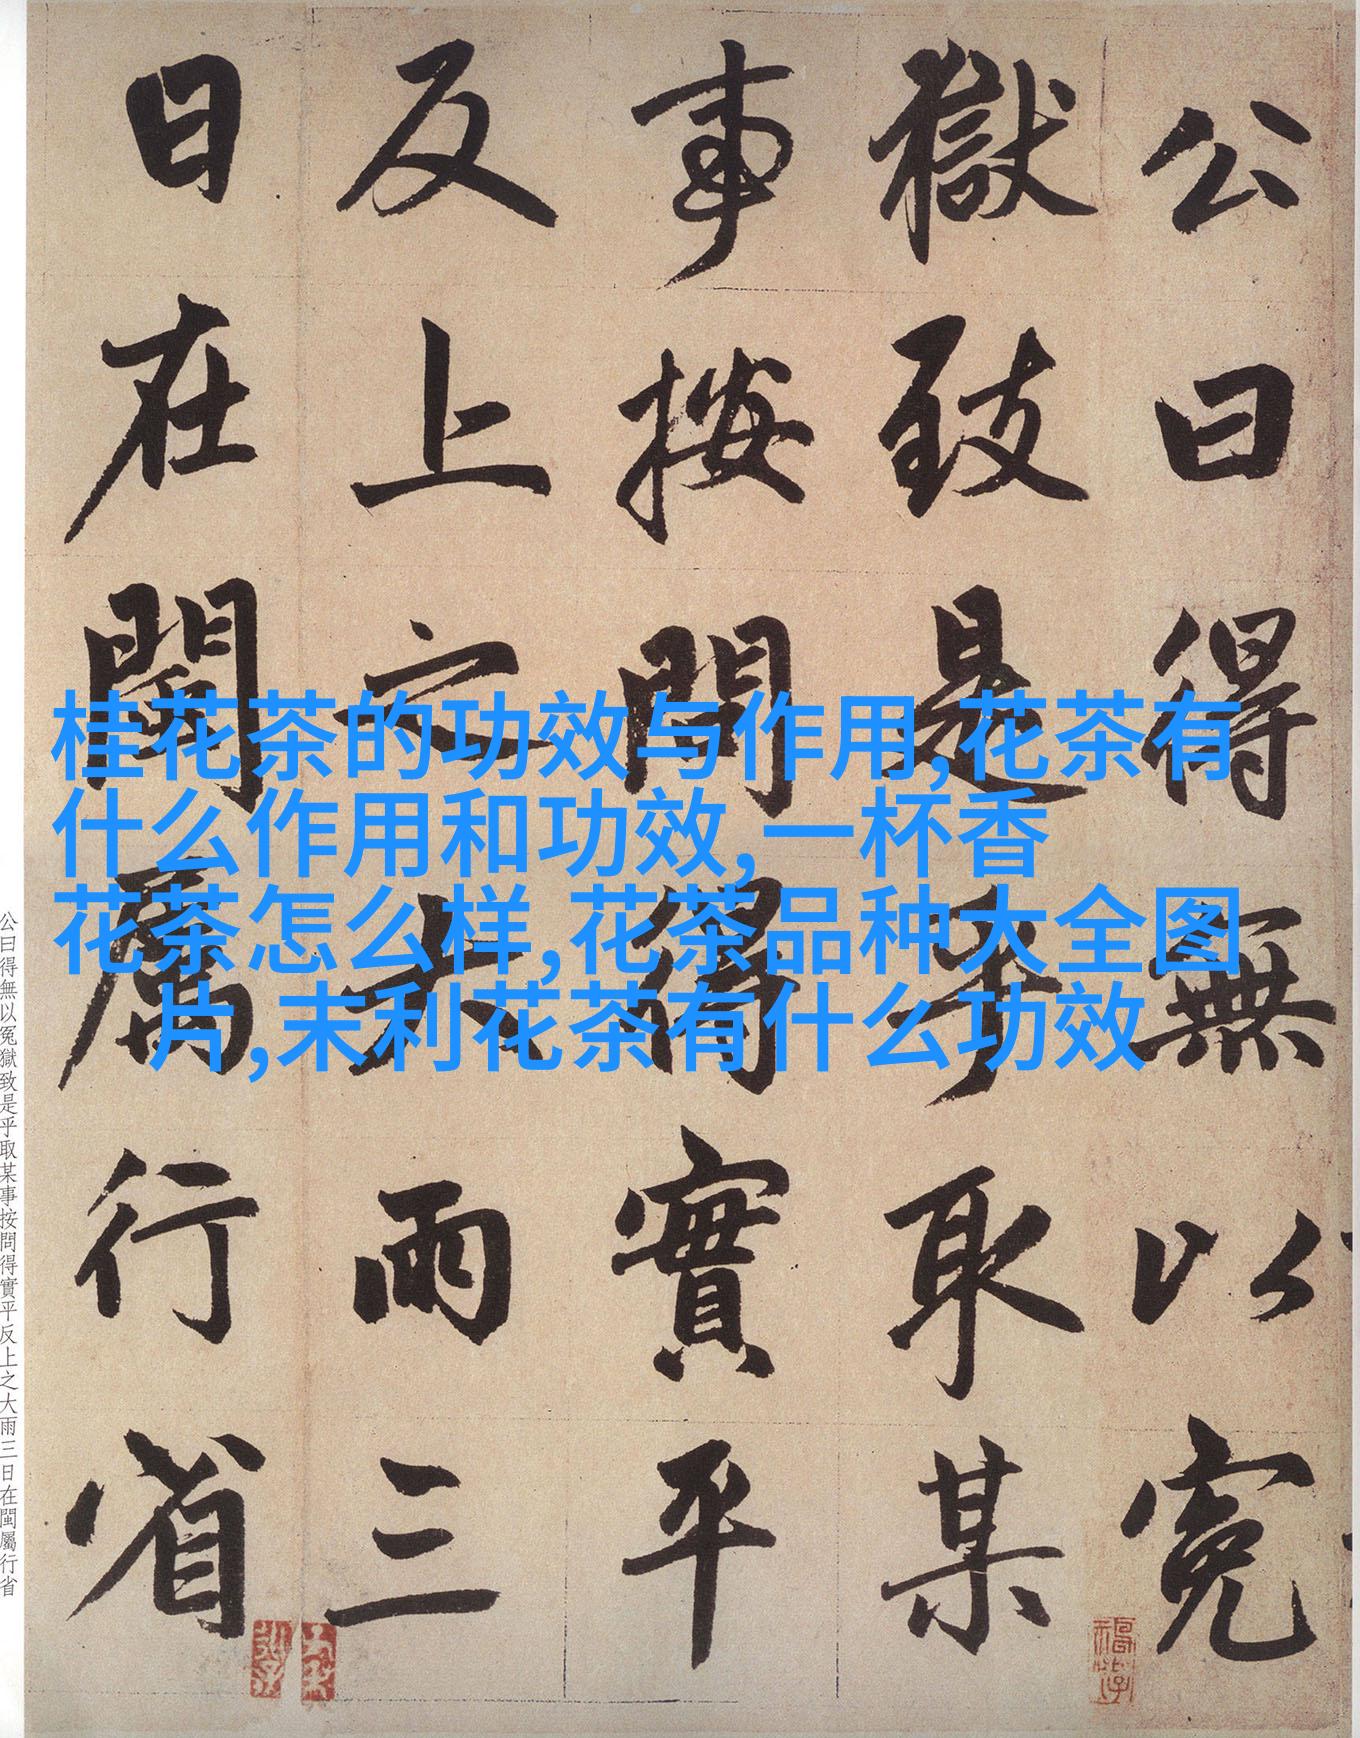 公曰得無以冤
獄致是乎取某
事按問得實平
反上之大雨三
日在閩屬行省
桂花茶的功效与作用,花茶有
什么作用和功效,一杯香
花茶怎么样,花茶品种大全图
片,末利花茶有什么功效
公曰得無以冤獄致是乎取某事按問得實平反上之大雨三日在閩屬行省